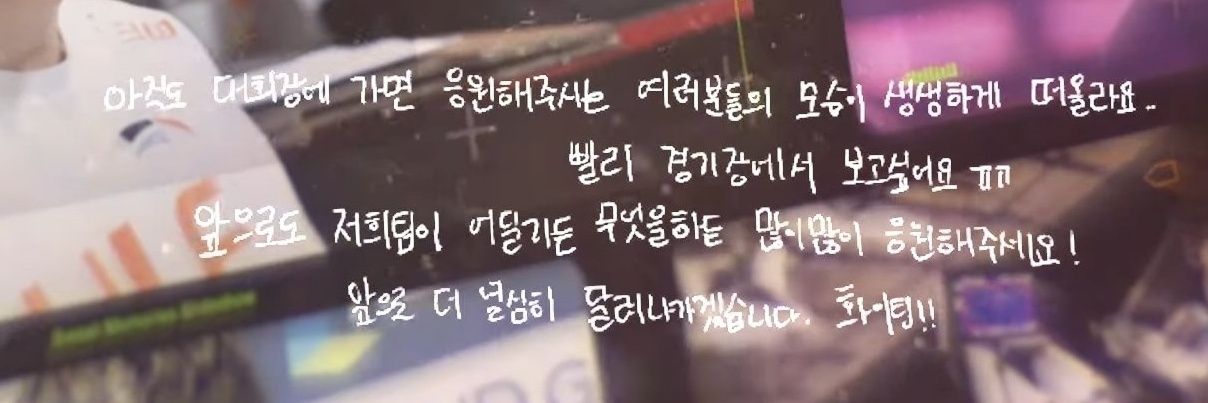 아직도 대회장에 가면 응원해주시는 여러분들의 모습이 생생하게 떠올라요.
빨리 경기장에서 보고싶어요 ㅠㅠ
앞으로도 저희팀이 어딜가든 무엇을하든 많이많이 응원해주세요!
앞으로 더 열심히 달려나가겠습니다. 화이팅!!